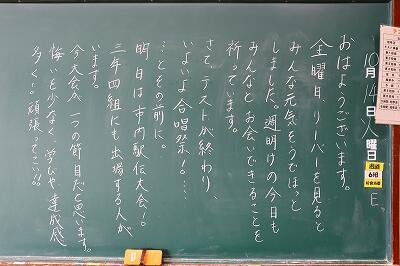 10月14日火曜日
おはようございます。
金曜日、リーバーを見ると
みんな元気そうでほっと
しました。週明けの今日も
みんなとお会いできることを
祈っています。
さて、テストが終わり、
いよいよ合唱祭！…
…とその前に。
明日は市内駅伝大会！。
三年四組にも出場する人が
います。
今大会が一つの節目だと思います。
悔いを少なく、学びや達成感
多く！頑張ってこい!!
6相
E